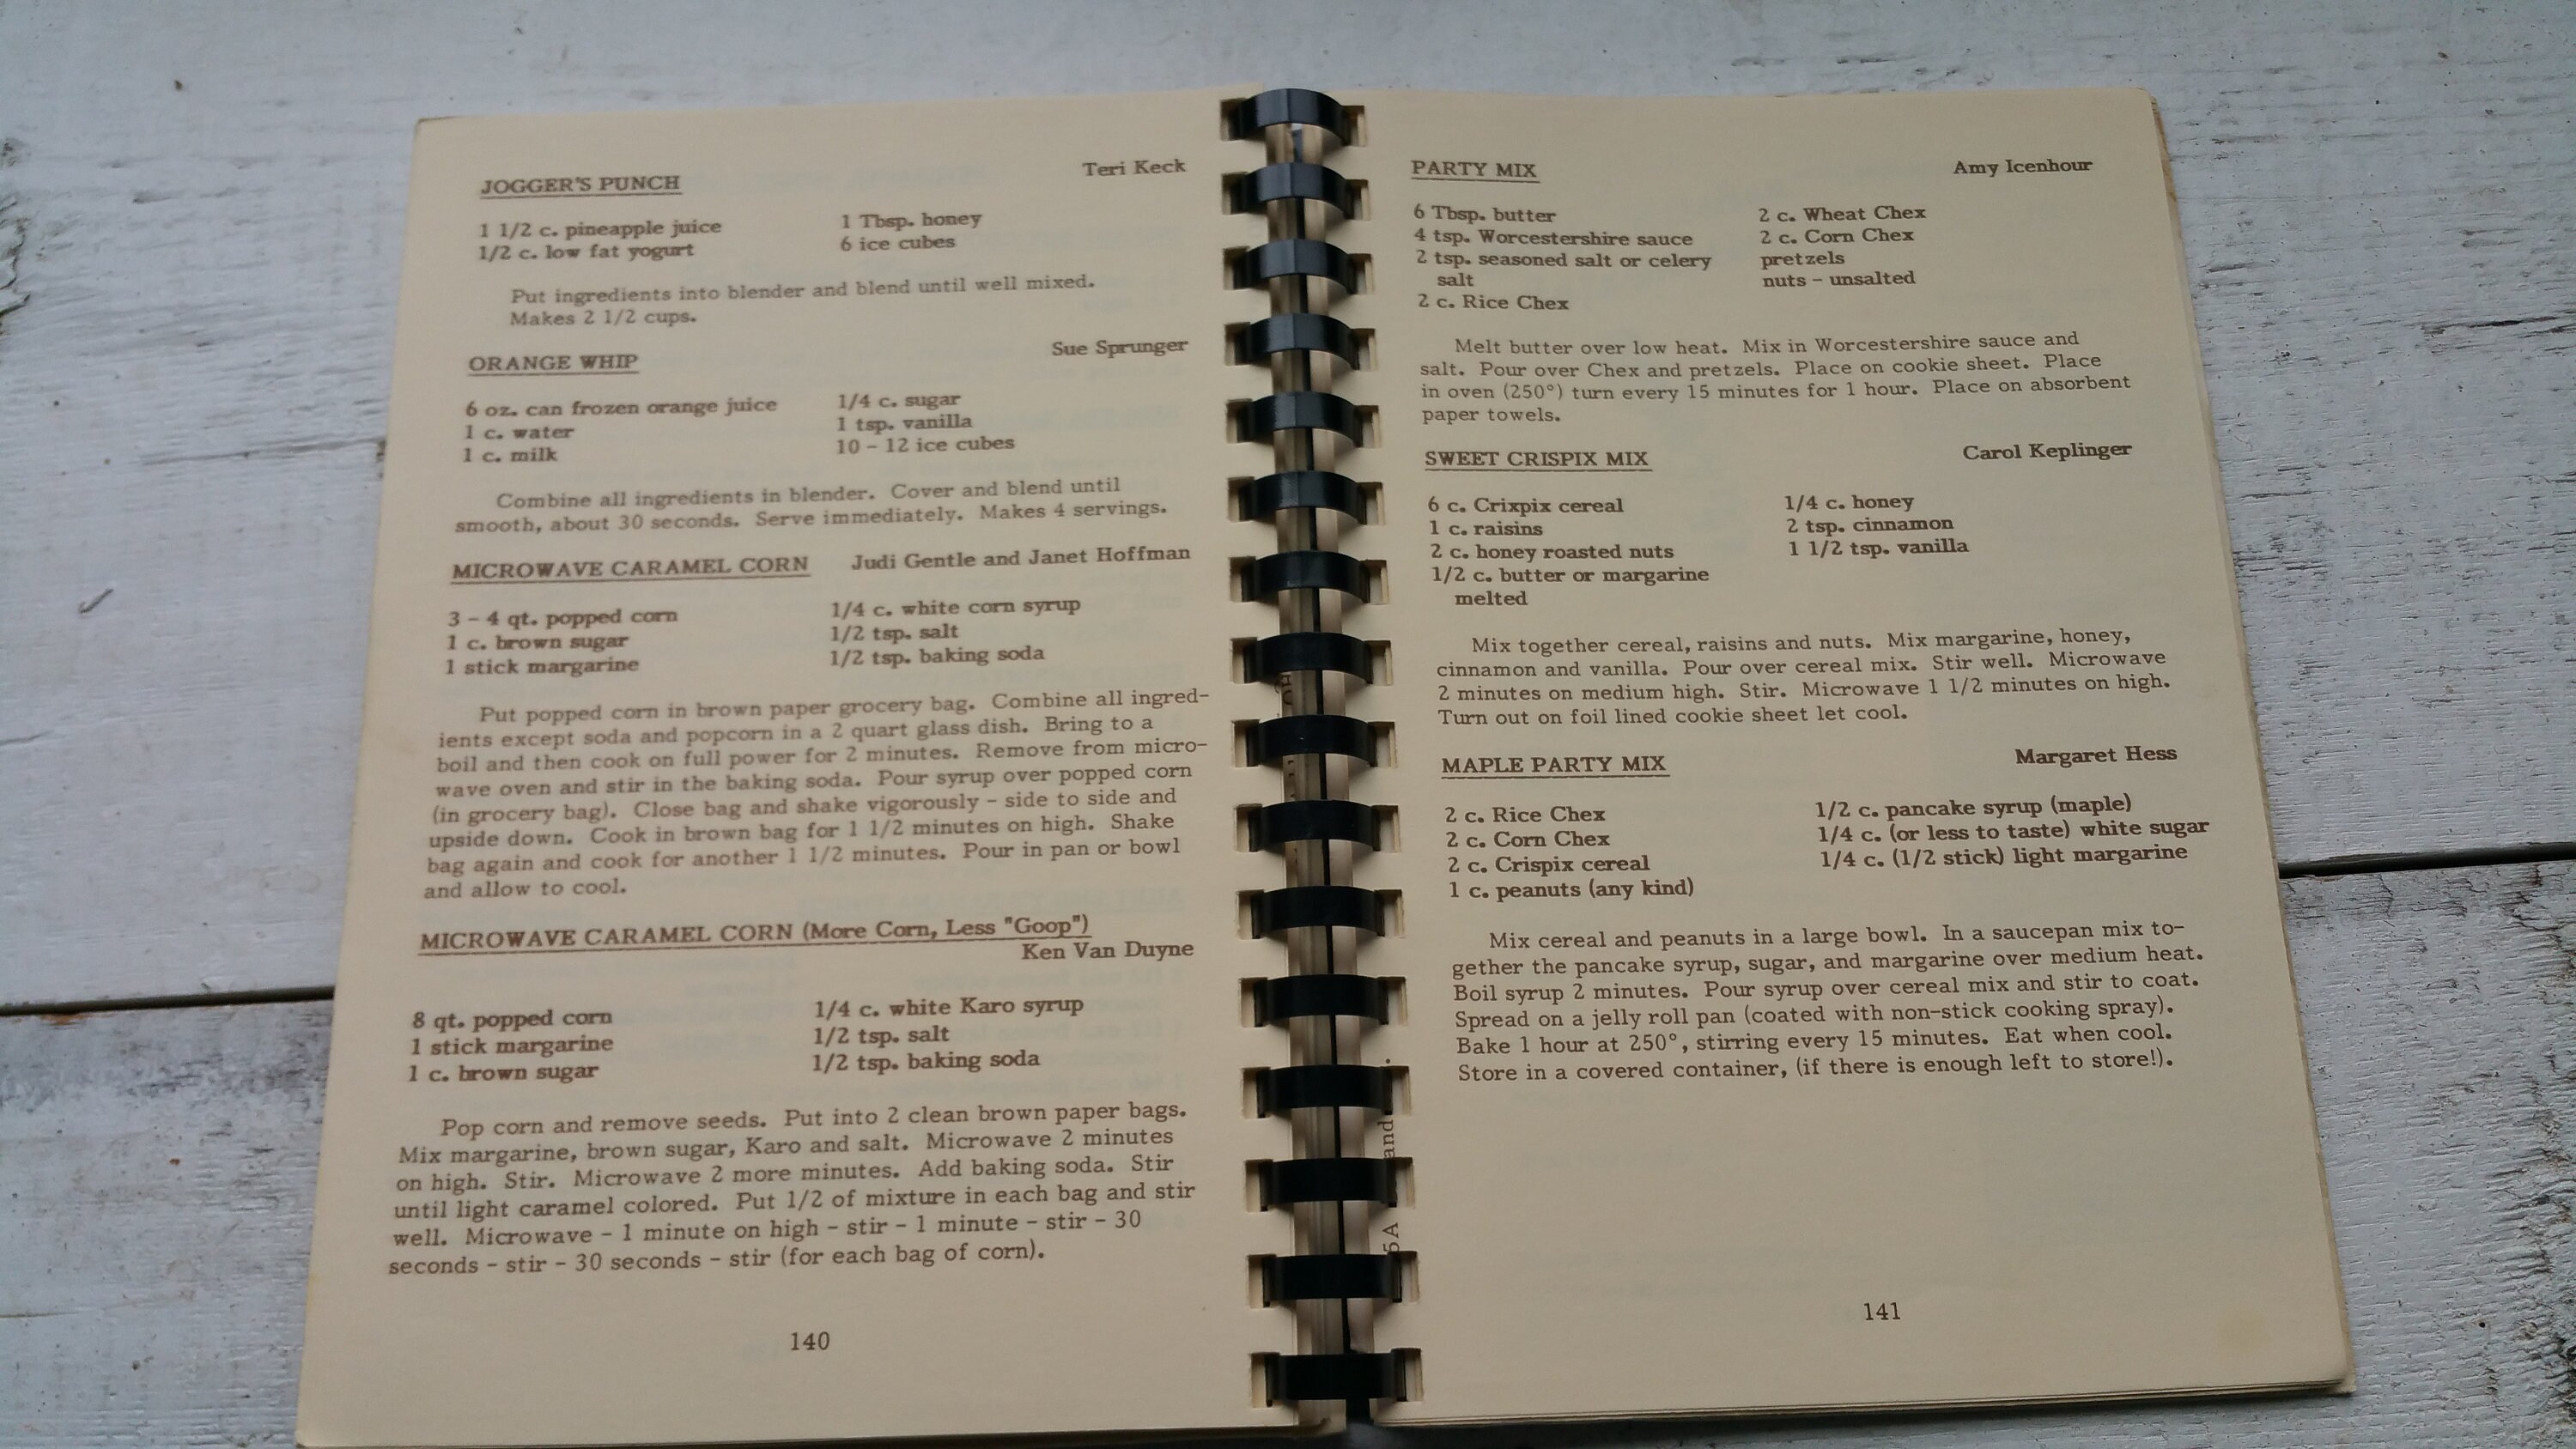 JOGGER'S PUNCH Teri Keck
1 1/2 c. pineapple juice 1 Tbsp. honey
1/2 c. low fat yogurt 6 ice cubes
Put ingredients into blender and blend until well mixed.
Makes 2 1/2 cups.
ORANGE WHIP Sue Sprunger
6 oz. can frozen orange juice 1/4 c. sugar
1 c. water 1 tsp. vanilla
1 c. milk 10 - 12 ice cubes
Combine all ingredients in blender. Cover and blend until
smooth, about 30 seconds. Serve immediately. Makes 4 servings.
MICROWAVE CARAMEL CORN Judi Gentle and Janet Hoffman
3 - 4 qt. popped corn 1/4 c. white corn syrup
1 c. brown sugar 1/2 tsp. salt
1 stick margarine 1/2 tsp. baking soda
Put popped corn in brown paper grocery bag. Combine all ingred-
ients except soda and popcorn in a 2 quart glass dish. Bring to a
boil and then cook on full power for 2 minutes. Remove from micro-
wave oven and stir in the baking soda. Pour syrup over popped corn
(in grocery bag). Close bag and shake vigorously - side to side and
upside down. Cook in brown bag for 1 1/2 minutes on high. Shake
bag again and cook for another 1 1/2 minutes. Pour in pan or bowl
and allow to cool.
MICROWAVE CARAMEL CORN (More Corn, Less "Goop")
Ken Van Duyne
8 qt. popped corn 1/4 c. white Karo syrup
1 stick margarine 1/2 tsp. salt
1 c. brown sugar 1/2 tsp. baking soda
Pop corn and remove seeds. Put into 2 clean brown paper bags.
Mix margarine, brown sugar, Karo and salt. Microwave 2 minutes
on high. Stir. Microwave 2 more minutes. Add baking soda. Stir
until light caramel colored. Put 1/2 of mixture in each bag and stir
well. Microwave - 1 minute on high - stir - 1 minute - stir - 30
seconds - stir - 30 seconds - stir (for each bag of corn).
140
PARTY MIX Amy Icenhour
6 Tbsp. butter 2 c. Wheat Chex
4 tsp. Worcestershire sauce 2 c. Corn Chex
2 tsp. seasoned salt or celery pretzels
salt nuts - unsalted
2 c. Rice Chex
Melt butter over low heat. Mix in Worcestershire sauce and
salt. Pour over Chex and pretzels. Place on cookie sheet. Place
in oven (250°) turn every 15 minutes for 1 hour. Place on absorbent
paper towels.
SWEET CRISPIX MIX Carol Keplinger
6 c. Crixpix cereal 1/4 c. honey
1 c. raisins 2 tsp. cinnamon
2 c. honey roasted nuts 1 1/2 tsp. vanilla
1/2 c. butter or margarine
melted
Mix together cereal, raisins and nuts. Mix margarine, honey,
cinnamon and vanilla. Pour over cereal mix. Stir well. Microwave
2 minutes on medium high. Stir. Microwave 1 1/2 minutes on high.
Turn out on foil lined cookie sheet let cool.
MAPLE PARTY MIX Margaret Hess
2 c. Rice Chex 1/2 c. pancake syrup (maple)
2 c. Corn Chex 1/4 c. (or less to taste) white sugar
2 c. Crispix cereal 1/4 c. (1/2 stick) light margarine
1 c. peanuts (any kind)
Mix cereal and peanuts in a large bowl. In a saucepan mix to-
gether the pancake syrup, sugar, and margarine over medium heat.
Boil syrup 2 minutes. Pour syrup over cereal mix and stir to coat.
Spread on a jelly roll pan (coated with non-stick cooking spray).
Bake 1 hour at 250°, stirring every 15 minutes. Eat when cool.
Store in a covered container, (if there is enough left to store!).
141
5A and